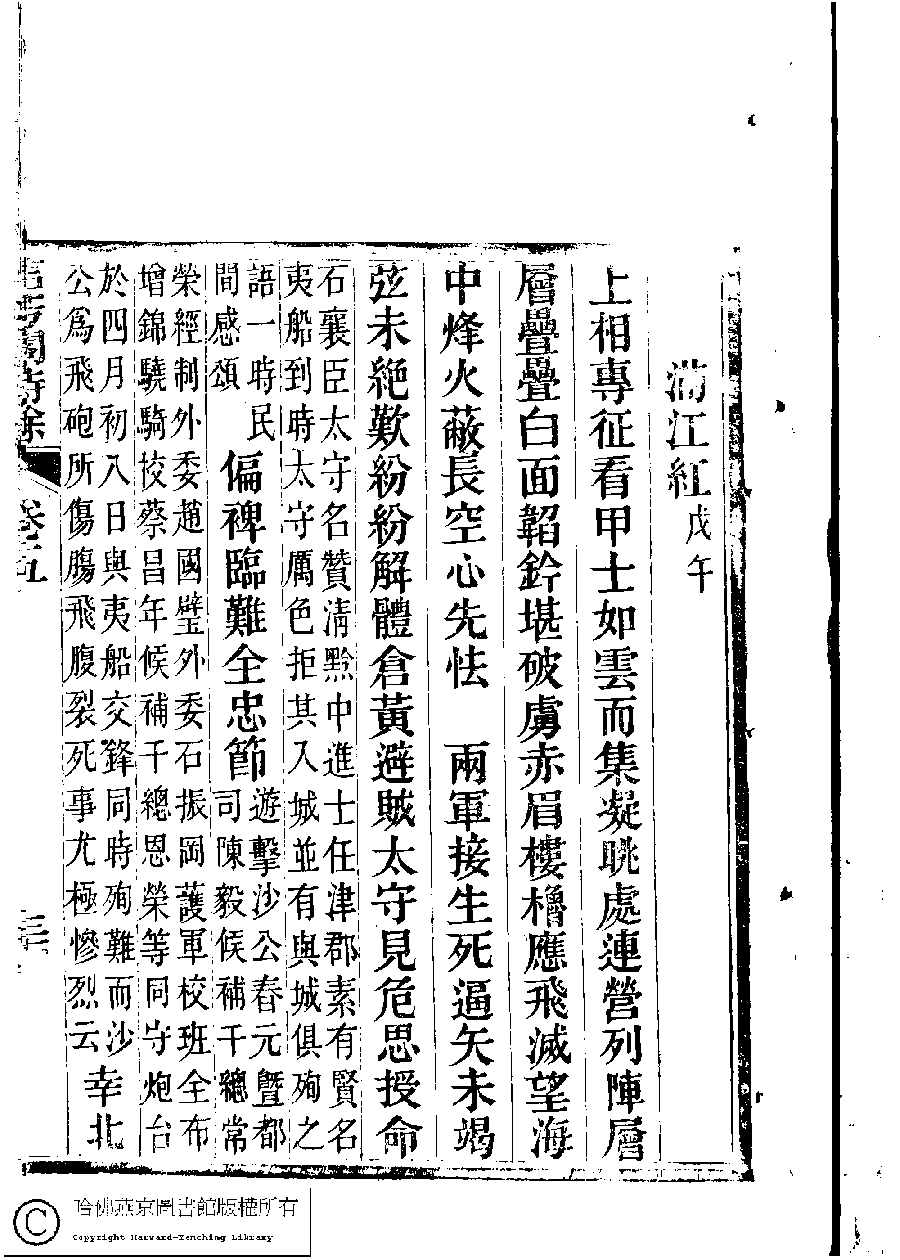 滿江紅戊午
上相專征看甲士如雲而集凝眺處連營列陣層
層疊疊白面韜鈐堪破虜赤眉樓櫓應飛滅望海
中烽火蔽長空心先怯　兩軍接生死逼矢未竭
弦未絕歎紛紛解體倉黃避賊太守見危思授命
石襄臣太守名贊淸黔中進士任津郡素有賢名
夷船到時太守厲色拒其入城並有與城俱殉之
語一時民
間感頌
偏裨臨難全忠節
遊擊沙公春元暨都
司陳毅候補千總常
榮經制外委趙國璧外委石振岡護軍校班全布
增錦驍騎校蔡昌年候補千總恩榮等同守炮台
於四月初入日與夷船交鋒同時殉難而沙
公爲飛砲所傷腸飛腹裂死事尤極慘烈云
幸北
卷十五
哈佛燕京圖書館版權所有
Copyright Harvard-Yenching Library